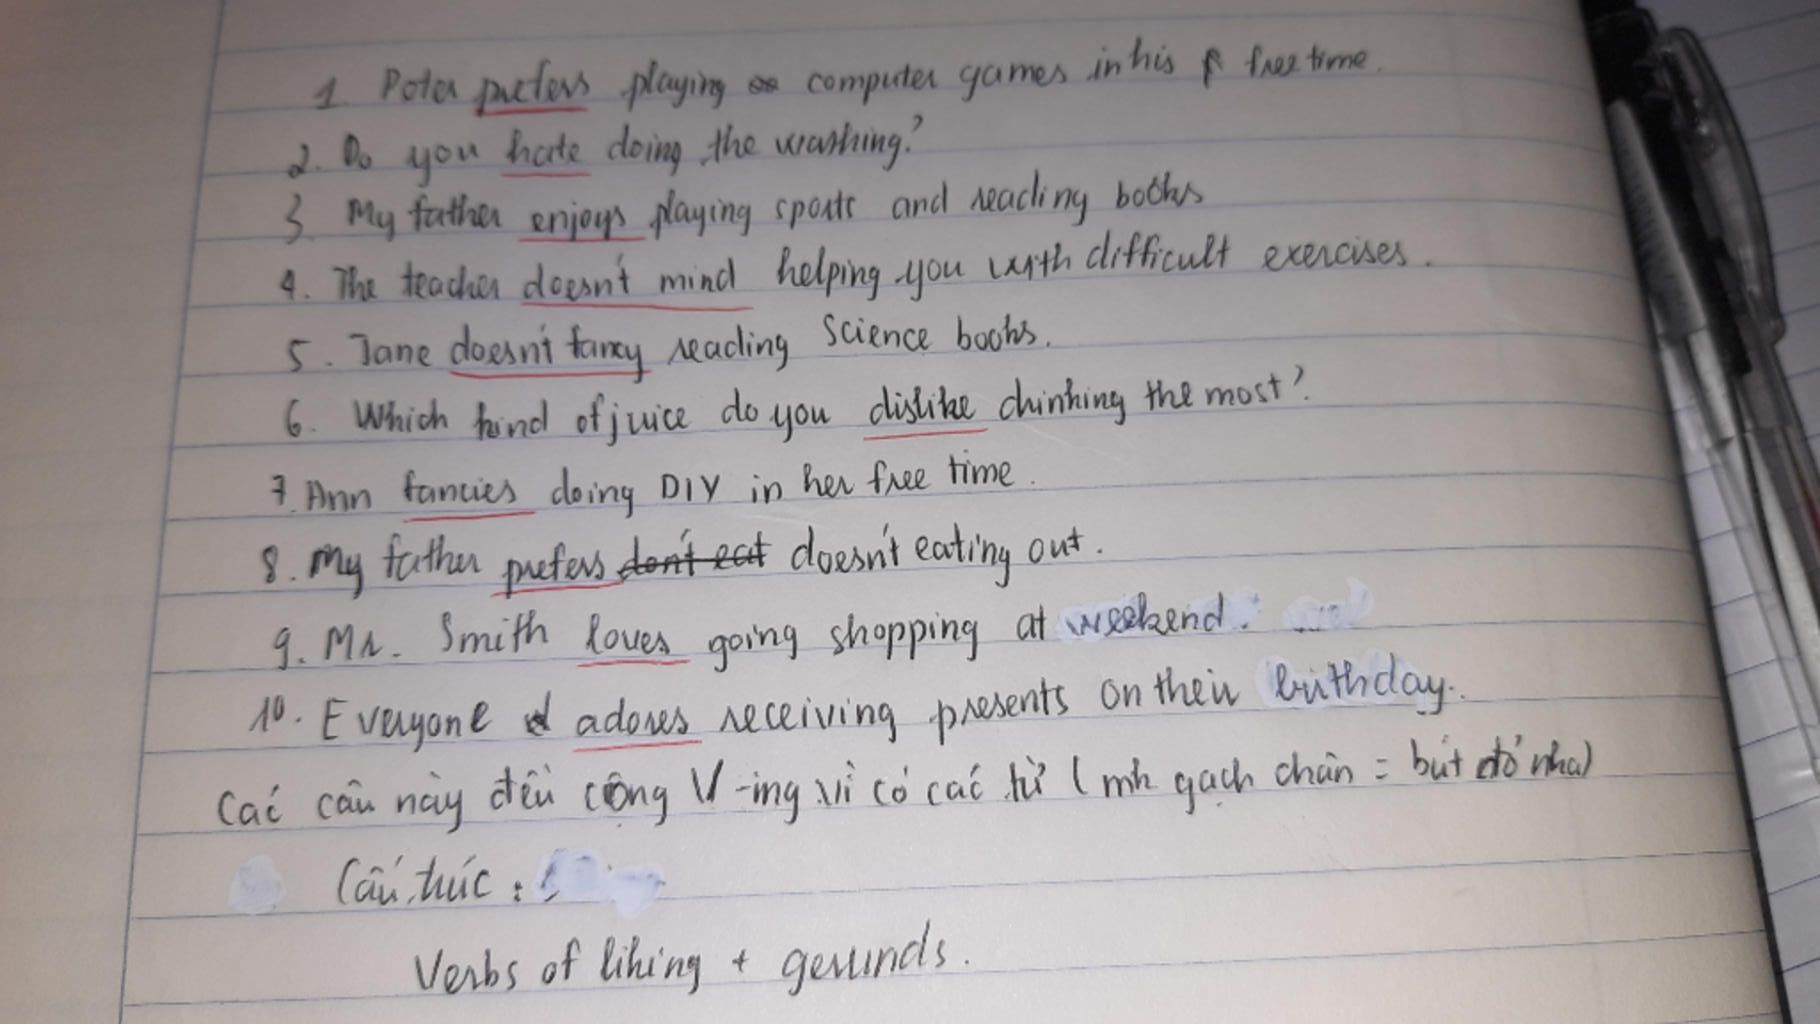 1. Peter prefers playing computer games in his free time.
2. Do you hate doing the washing?
3. My father enjoys playing sports and reading books
4. The teacher doesn't mind helping you with difficult exercises.
5. Jane doesn't fancy reading Science books.
6. Which kind of juice do you dislike drinking the most?
7. Ann fancies doing DIY in her free time.
8. My father prefers don't eat doesn't eating out.
9. Mr. Smith loves going shopping at weekend.
10. Everyone adores receiving presents on their birthday.
Các câu này đều cộng V-ing vì có các từ (mk gạch chân = bút đỏ nha)
Cấu trúc :
Verbs of liking + gerunds.